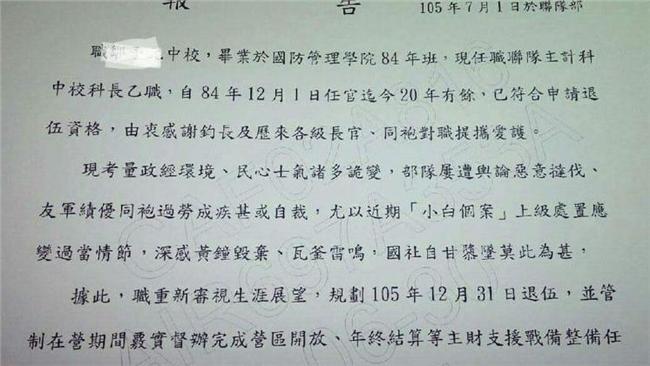 報告 105年7月1日於聯隊部
職 中校，畢業於國防管理學院84年班，現任職聯隊主計科
中校科長乙職，自84年12月1日任官迄今20年有餘，已符合申請退
伍資格，由衷感謝鈞長及歷來各級長官、同袍對職提攜愛護。
現考量政經環境、民心士氣諸多詭變，部隊屢遭輿論惡意撻伐、
友軍績優同袍過勞成疾甚或自裁，尤以近期「小白個案」上級處置應
變過當情節，深感黃鐘毀棄、瓦釜雷鳴，國社自甘墮莫此為甚，
據此，職重新審視生涯展望，規劃105年12月31日退伍，並管
制在營期間覈實督辦完成營區開放、年終結算等主財支援戰備整備任